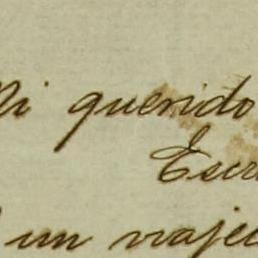 Mi querido
Escri
un viaje